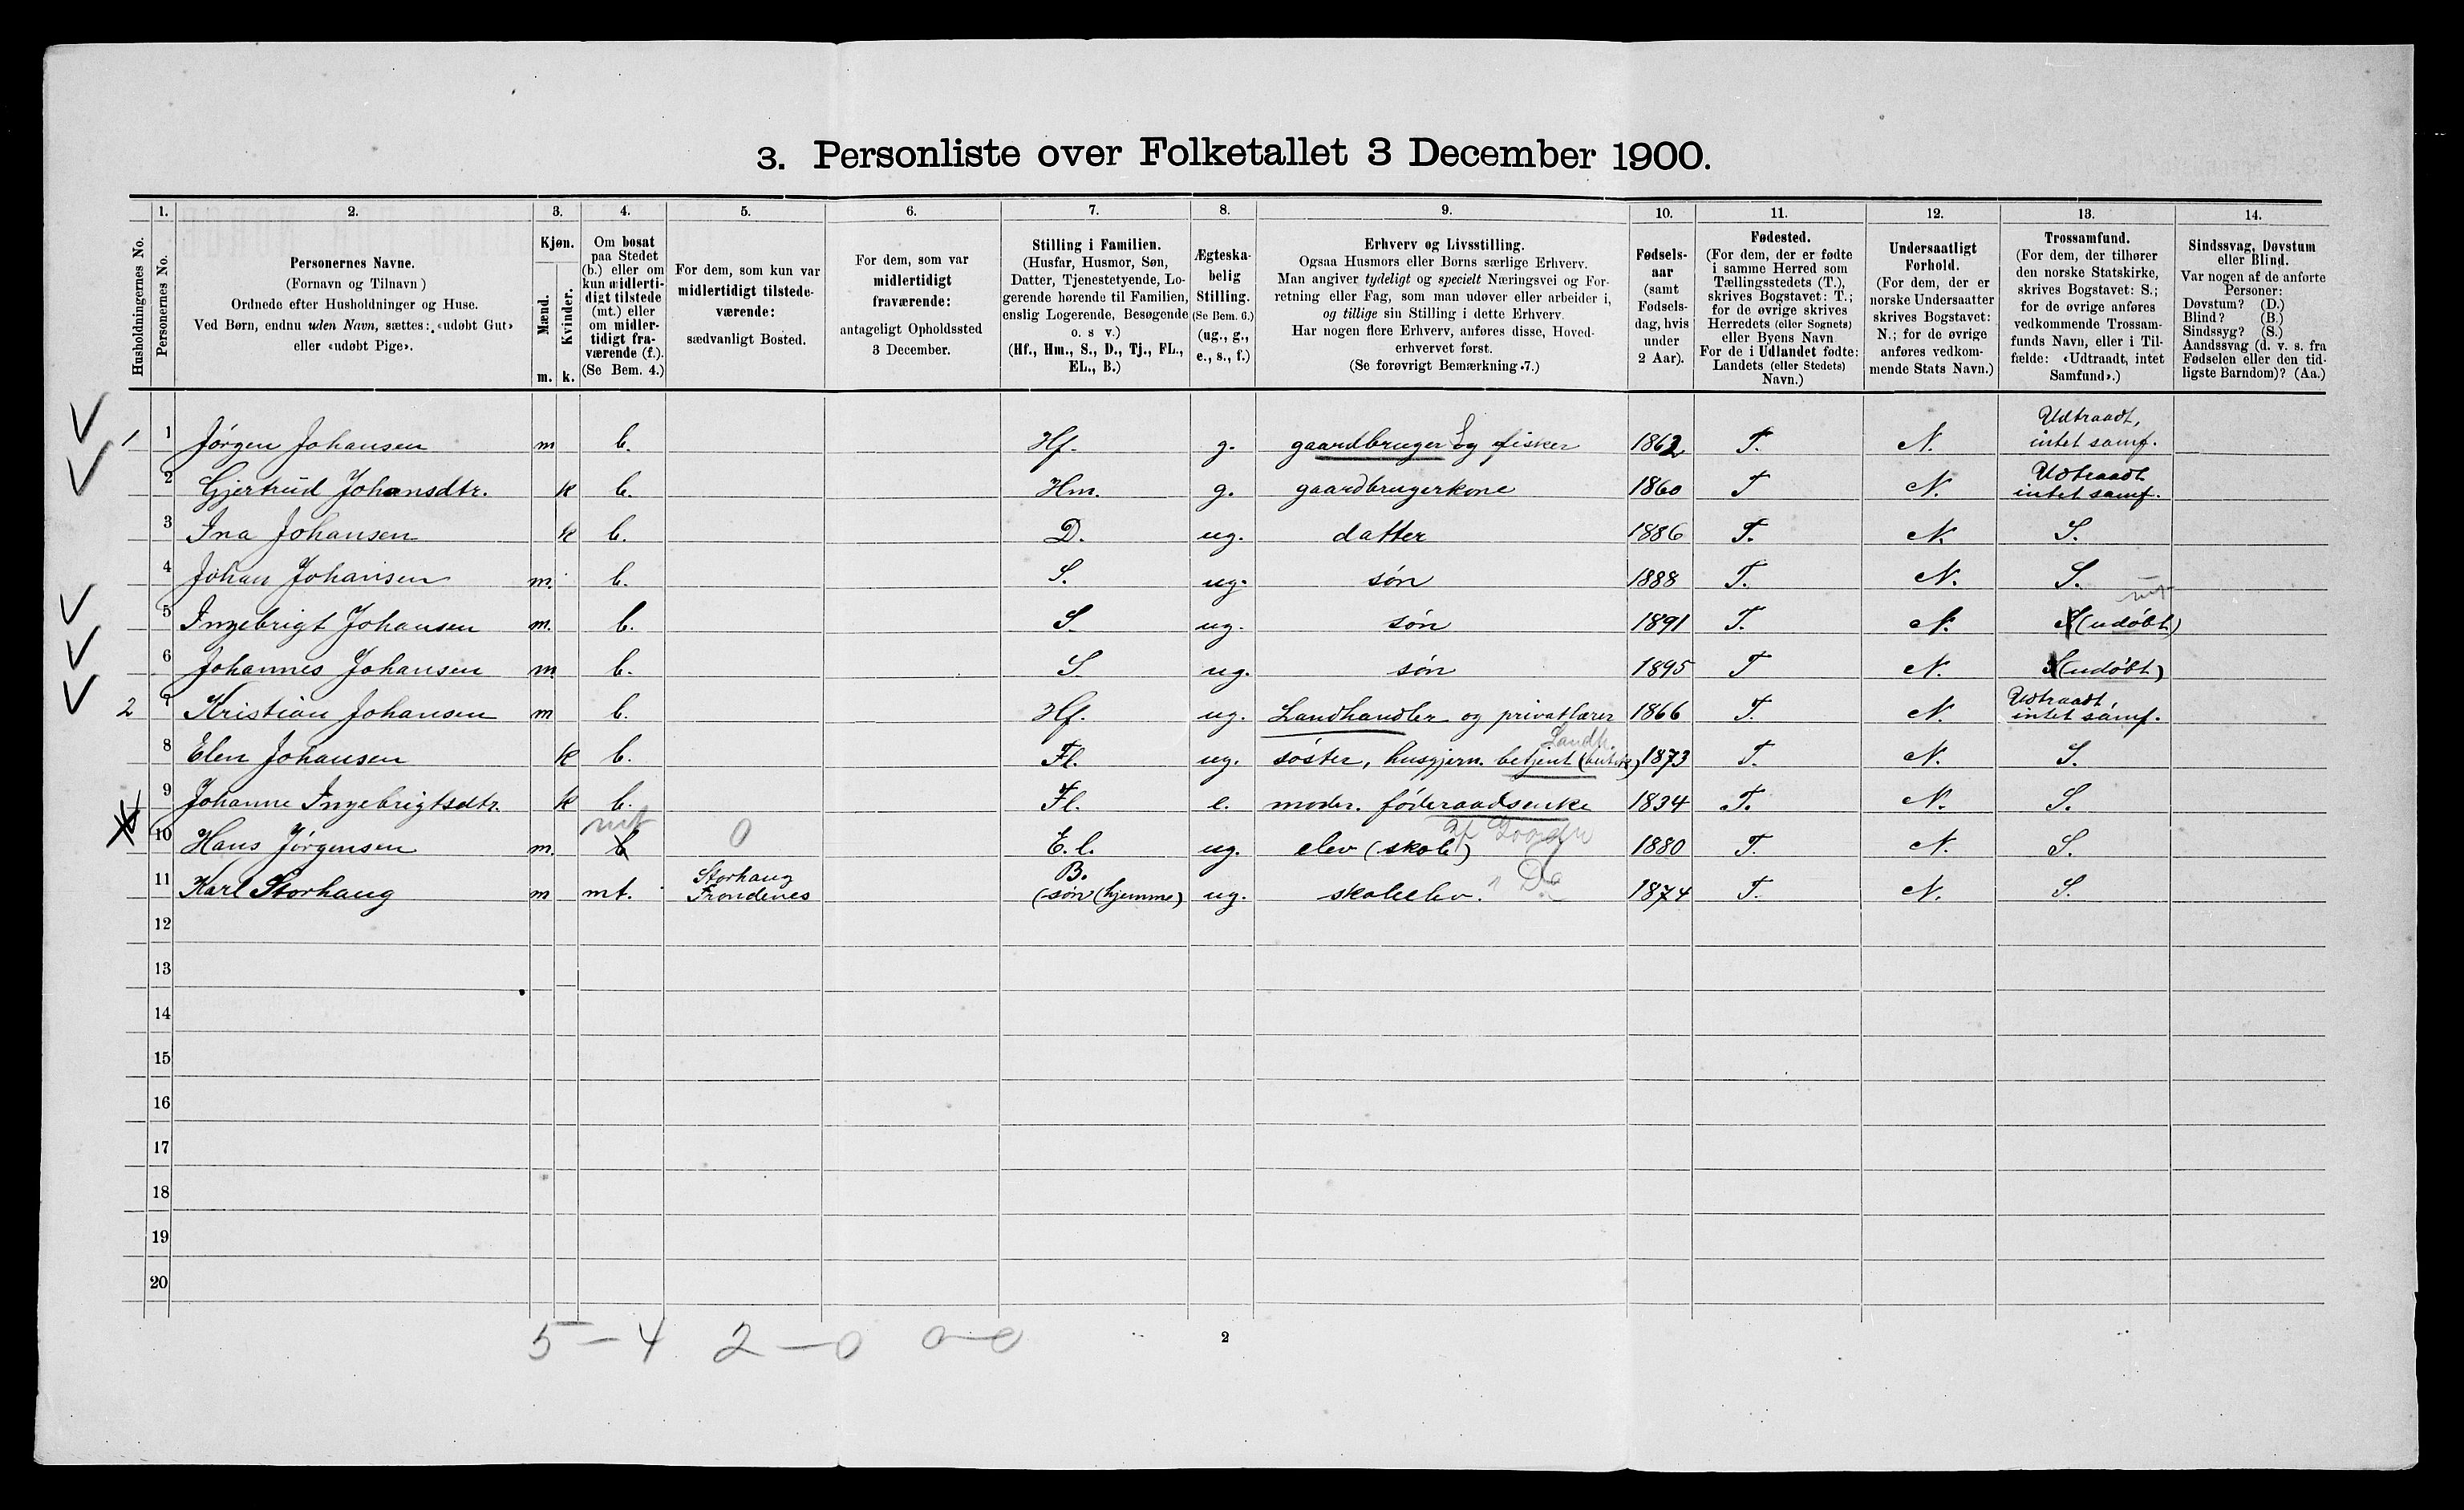 3. Personliste over Folketallet 3 December 1900.
1. 2. 3. 4. 5. 6. 7. 8. 9. 10. 11. 12. 13. 14.
Husholdningernes No.
Personernes No.
Personernes Navne.
(Fornavn og Tilnavn)
Ordnede efter Husholdninger og Huse.
Ved Børn, endnu uden Navn, sættes: «udøbt Gut»
eller «udøbt Pige».
Kjøn.
Mænd.
Kvinder.
m. k.
Om bosat
paa Stedet
(b.) eller om
kun midlerti-
digt tilstede
(mt.) eller
om midler-
tidigt fra-
værende (f.).
(Se Bem. 4.)
For dem, som kun var
midlertidigt tilstede-
værende:
sædvanligt Bosted.
For dem, som var
midlertidigt
fraværende:
antageligt Opholdssted
3 December.
Stilling i Familien.
(Husfar, Husmor, Søn,
Datter, Tjenestetyende, Lo-
gerende hørende til Familien,
enslig Logerende, Besøgende
o. s v.)
(Hf., Hm., S., D., Tj., FL.,
EL., B.)
Ægteska-
belig
Stilling.
(Se Bem. 6.)
(ug., g.,
e., s., f.)
Erhverv og Livsstilling.
Ogsaa Husmors eller Børns særlige Erhverv.
Man angiver tydeligt og specielt Næringsvei og For-
retning eller Fag, som man udøver eller arbeider i,
og tillige sin Stilling i dette Erhverv.
Har nogen flere Erhverv, anføres disse, Hoved-
erhvervet først.
(Se forøvrigt Bemærkning 7.)
Fødsels-
aar
(samt
Fødsels-
dag, hvis
under
2 Aar).
Fødested.
(For dem, der er fødte
i samme Herred som
Tællingsstedets (T.),
skrives Bogstavet: T.;
for de øvrige skrives
Herredets (eller Sognets)
eller Byens Navn
For de i Udlandet fødte:
Landets (eller Stedets)
Navn.)
Undersaatligt
Forhold.
(For dem, der er
norske Undersaatter
skrives Bogstavet:
N.; for de øvrige
anføres vedkom-
mende Stats Navn.)
Trossamfund.
(For dem, der tilhører
den norske Statskirke,
skrives Bogstavet: S.;
for de øvrige anføres
vedkommende Trossam-
funds Navn, eller i Til-
fælde: «Udtraadt, intet
Samfund».)
Sindssvag, Døvstum
eller Blind.
Var nogen af de anførte
Personer:
Døvstum? (D.)
Blind? (B.)
Sindssyg? (S.)
Aandssvag (d. v. s. fra
Fødselen eller den tid-
ligste Barndom)? (Aa.)
Udtraadt,
1 1 Jørgen Johansen m b. Hf. g. gaardbruger og fisker 1862 T. N. intet samf.
Udtraadt
2 Gjertrud Johansdtr. k b. Hm. g. gaardbrugerkone 1860 T N. intet samf.
3 Ina Johansen k b. D. ug. datter 1886 T. N. S.
4 Johan Johansen m. b. S. ug. søn 1888 T. N. S.
5 Ingebrigt Johansen m. b. S. ug. søn 1891 T. N. S (udøbt)
6 Johannes Johansen m b. S. ug. søn 1895 T N. S (udøbt)
Udtraadt,
2 7 Kristian Johansen m b. Hf. ug. Landhandler og privatlærer 1866 T. N. intet samf.
Landh.
8 Elen Johansen k b. Fl. ug. søster, husgjern. betjent (butik) 1873 T. N. S.
9 Johanne Ingebrigtsdtr. k b. Fl. e. moder. føderaadsenke 1834 T. N. S.
mt 0
10 Hans Jørgensen m. b E. l. ug. elev (skole) 1880 T. N. S.
Storhaug B.
11 Karl Storhaug m mt. Trondenes (søn (hjemme) ug. skoleelev. Do 1874 T. N. S.
12
13
14
15
16
17
18
19
20
5 - 4 2 - 0 0 - 0
2